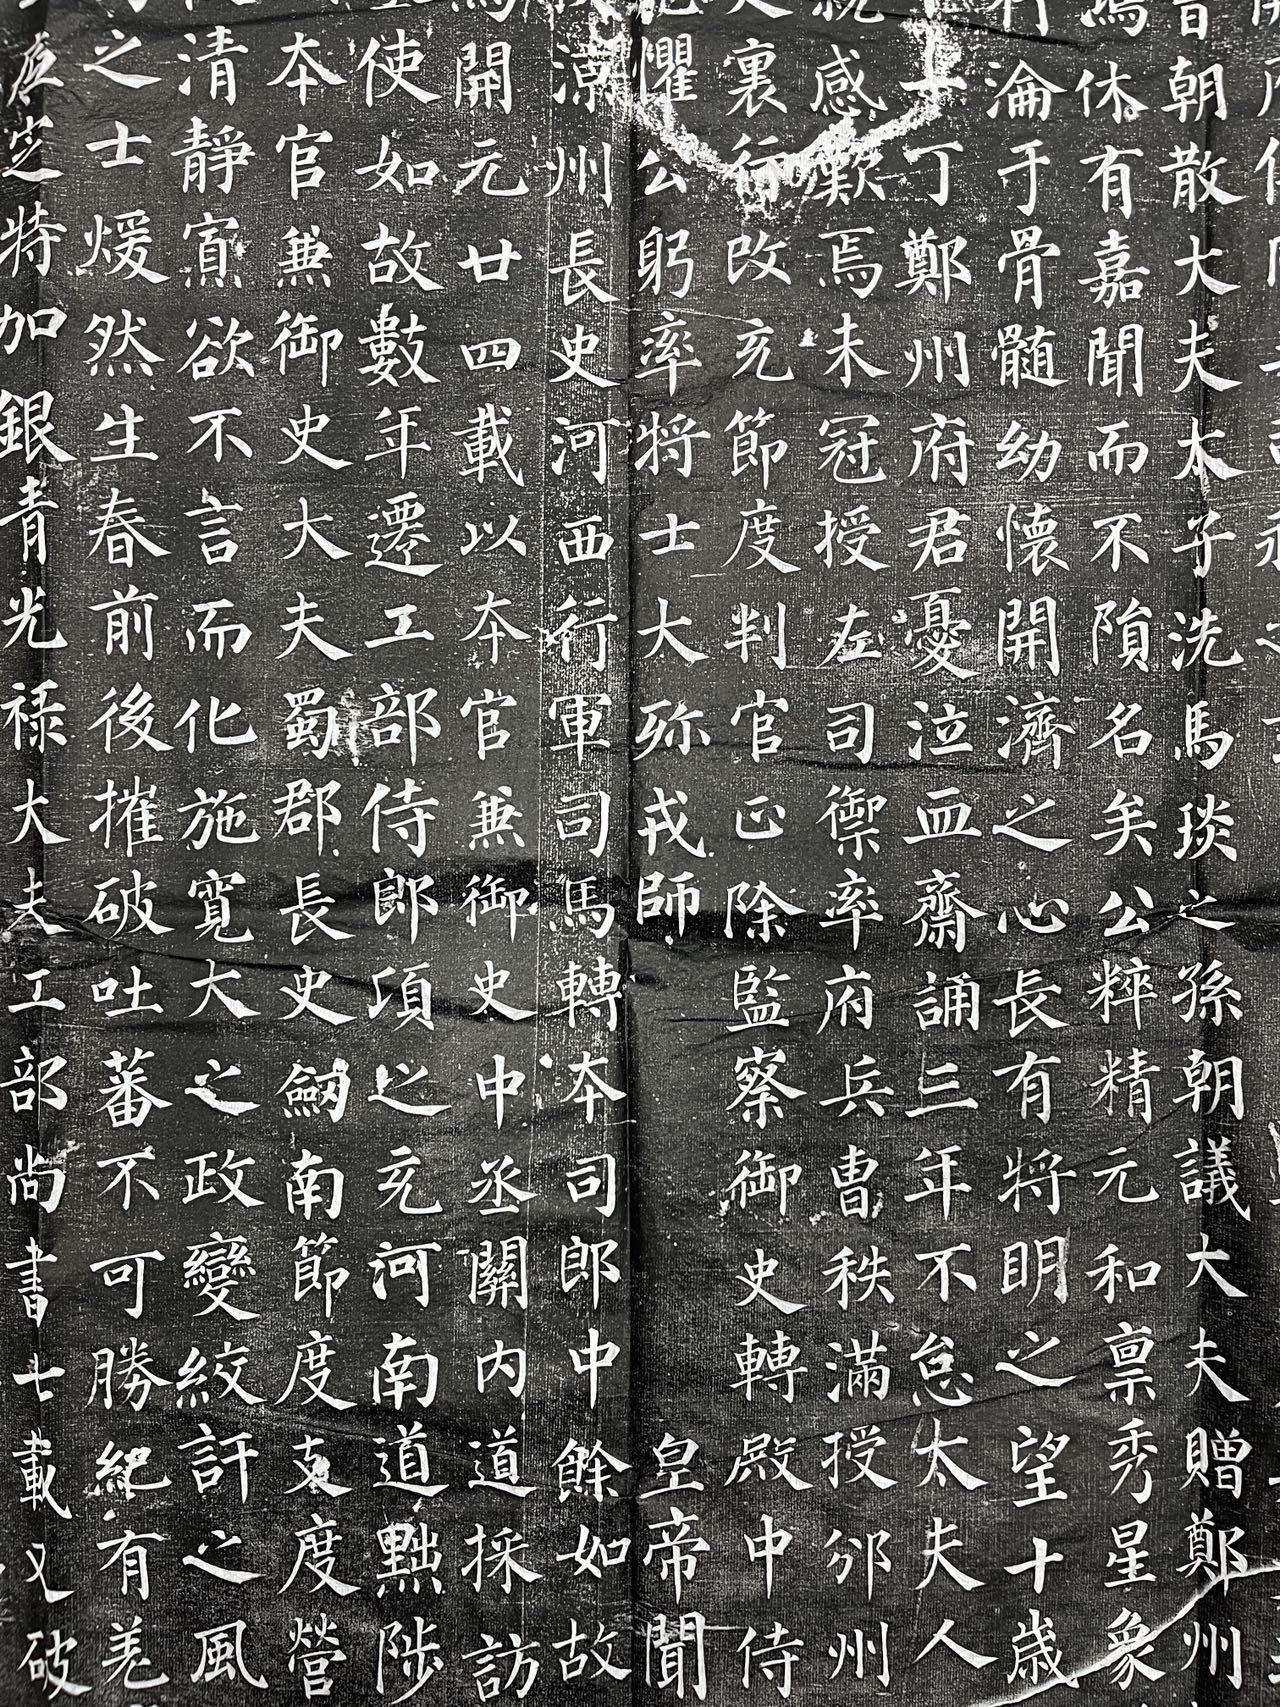 昔朝散大夫太子洗馬琰之孫朝議大夫贈鄭州
焉休有嘉聞而不隕名矣公粹精元和禀秀星象
行淪于骨髓幼懷開濟之心長有將明之望十歲
丁鄭州府君憂泣血齋誦三年不怠太夫人
就感歎焉未冠授左司禦率府兵曹秩滿授邠州
裏行改充節度判官正除監察御史轉殿中侍
懼公躬率將士大殄戎師 皇帝聞
涼州長史河西行軍司馬轉本司郎中餘如故
開元廿四載以本官兼御史中丞關內道採訪
使如故數年遷工部侍郎頃之充河南道黜陟
本官兼御史大夫蜀郡長史劒南節度支度營
清靜寡欲不言而化施寬大之政變絞訐之風
之士煖然生春前後摧破吐蕃不可勝紀有羌
特加銀青光祿大夫工部尚書七載又破